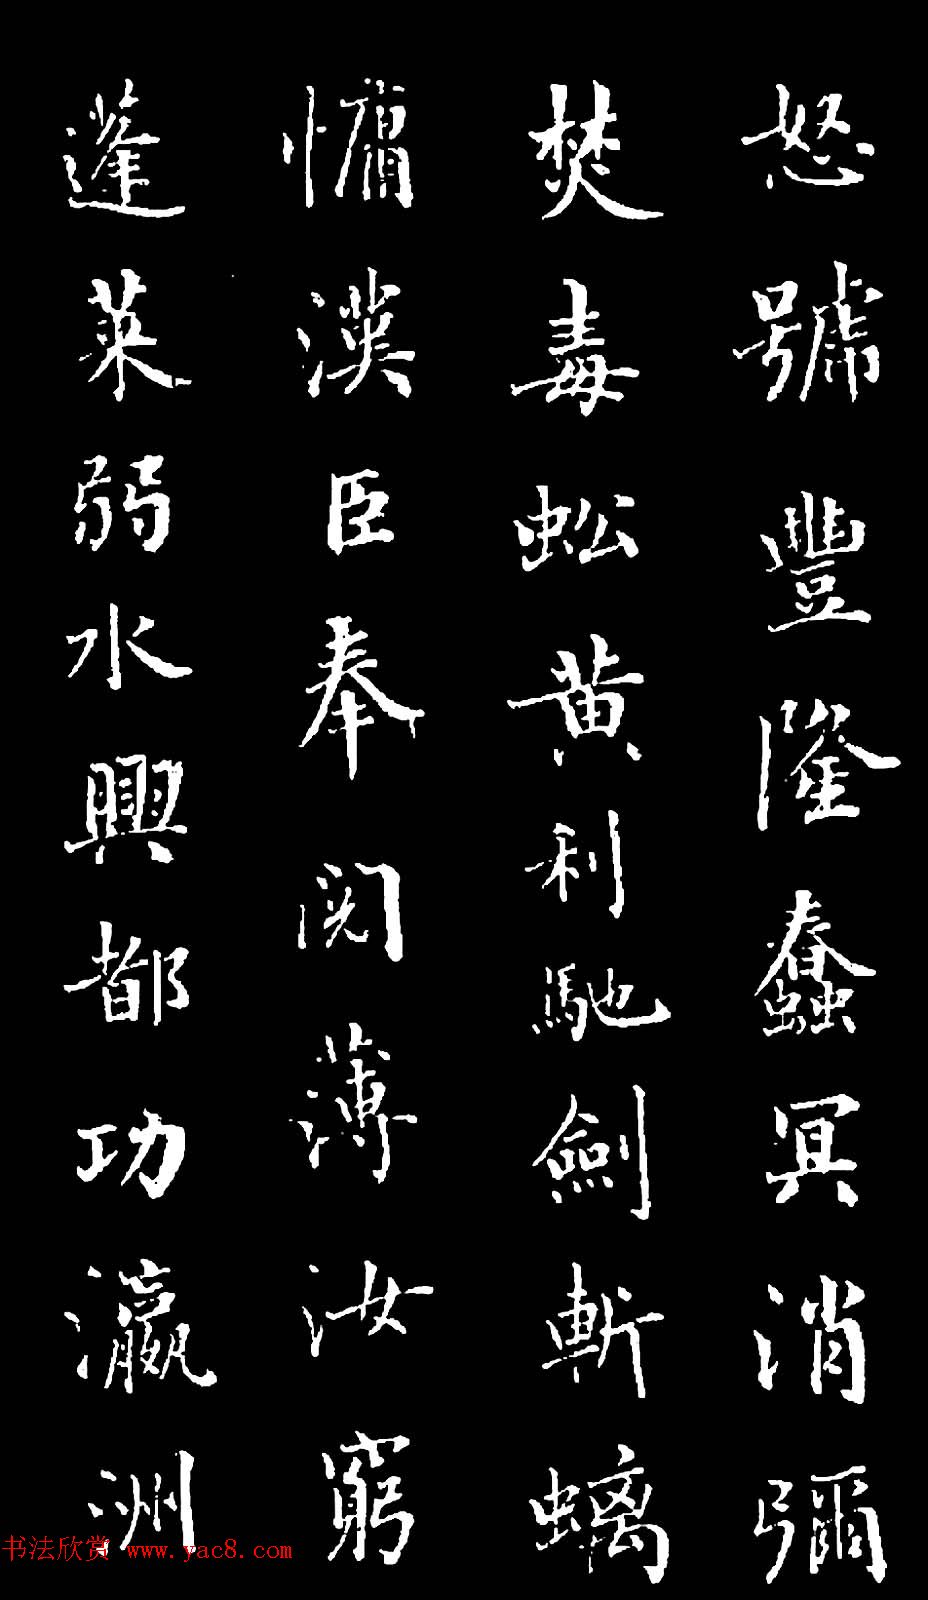 怒號豐隆蠢冥消彌
焚毒蚣黄利馳劍斬螭
慵漢臣奉閱薄汝窮
蓬莱弱水興都功瀛洲
书法欣赏 www.yac8.com